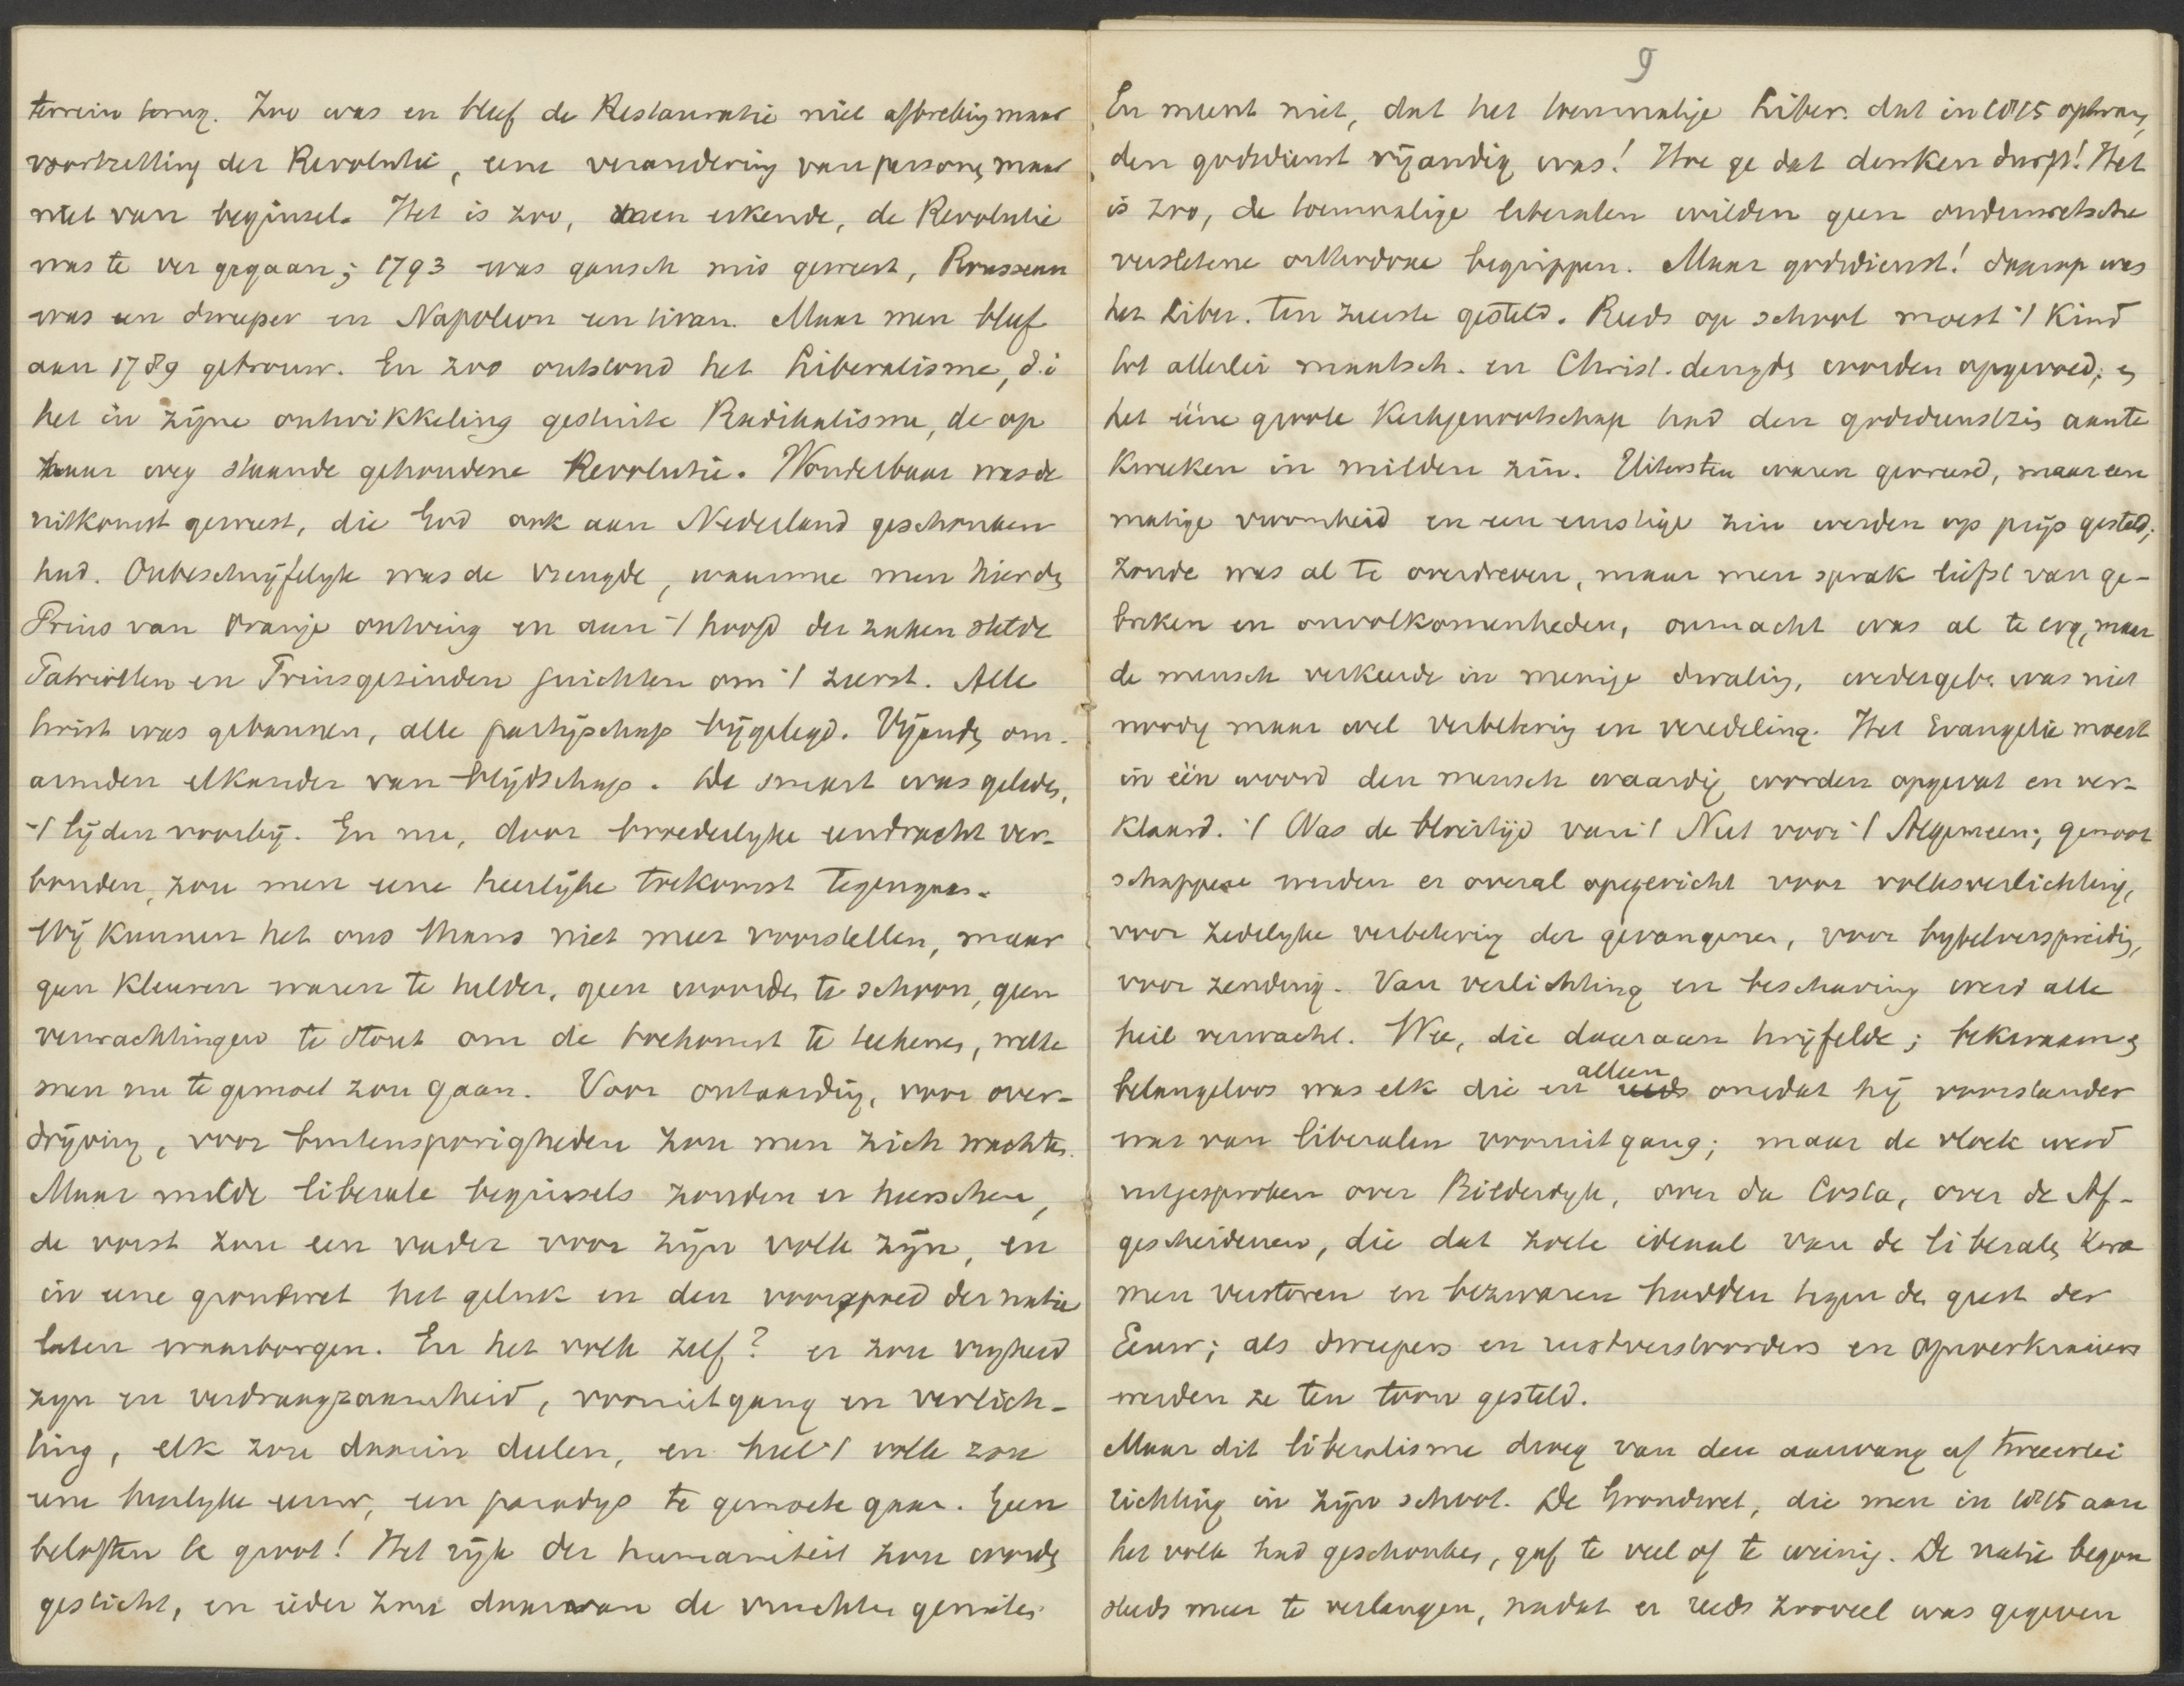 terrein terug. Zoo was en bleef de Restauratie niet afbreking maar
voortzetting der Revolutie, eene verandering van persones maar
niet van beginsel. Het is zoo, men erkende, de Revolutie
was te ver gegaan; 1793 was gansch mis geweest, Rousseau
was een dweeper en Napoleon een tiran. Maar men bleef
aan 1789 getrouw. En zoo ontstond het Liberalisme, d.i
het in zijne ontwikkeling gestuite Radikalisme, de op
haar weg staande gehoudene Revolutie. Wonderbaar was de
uitkomst geweest, die God ook aan Nederland geschonken
had. Onbeschrijfelijk was de vreugde, waarmee men hier de
Prins van Oranje ontving en aan 't hoofd der zaken stelde
Patriotten en Prinsgezinden juichten om 't zeerst. Alle
twist was gebannen, alle partijschap bijgelegd. Vijande om-
armden elkander van blijdschap. De smart was gelede,
't lijden voorbij. En nu, door broederlyke eendracht ver-
bonden, zou men eene heerlijke toekomst tegengaan.
Wij kunnen het ons thans niet meer voorstellen, maar
geen kleuren waren te helder, geen woorden te schoon, geen
verwachtingen te stout om de toekomst te teekenen, welke
men nu te gemoet zou gaan. Voor ontaarding, voor over-
drijving, voor buitensporigheden zou men zich wachten.
Maar milde liberale beginsels zouden er heerschen,
de vorst zou een vader voor zijn volk zijn, en
in eene grondwet het geluk en den voorspoed der natie
laten waarborgen. En het volk zelf? er zou vryheid
zyn en verdraagzaamheid, vooruitgang en verlich-
ting, elk zou daarin delen, en heel 't volk zou
eene heerlyke eeuw, een paradys te gemoete gaan. Geen
beloften te groot! Het rijk der humaniteit zou worde
gesticht, en ieder zou daarvan de vruchten genieten.
9
En meent niet, dat het toenmalige Liber. dat in 1815 optrad,
den godsdienst vijandig was! Hoe ge dat denken durft! Het
is zoo, de toenmalige liberalen wilden geen ouderwetsche
versletene orthodoxe begrippen. Maar godsdienst! daarop was
het Liber. ten zeerste gesteld. Reeds op school moest 't kind
tot allerlei maatsch. en Christ. deugde worden opgevoed; e
het ééne groote Kerkgenootschap had den godsdienstzin aan te
kweeken in milden zin. Uitersten waren gevreesd, maar een
matige vroomheid en een ernstige zin werden op prijs gesteld;
zonde was al te overdreven, maar men sprak liefst van ge-
breken en onvolkomenheden, onmacht was al te erg, maar
de mensch verkeerde in menige dwaling, wedergeb. was niet
noodig maar wel verbetering en veredeling. Het Evangelie moest
in één woord den mensch waardig worden opgevat en ver-
klaard. 't Was de bloeitijd van 't Nut voor 't Algemeen; genoot
schappen werden er overal opgericht voor volksverlichting,
voor zedelyke verbetering der gevangenen, voor bybelverspreiding,
voor zending. Van verlichting en beschaving werd alle
heil verwacht. Wee, die daaraan twijfelde; bekwaam e
belangeloos was elk die en alleen omdat hij voorstander
was van liberalen vooruitgang; maar de vloek werd
uitgesproken over Bilderdyk, over da Costa, over de Af-
gescheidenen, die dat zoete ideaal van de liberale kwa
men verstoren en bezwaren hadden tegen de geest der
Eeuw; als dweepers en rustverstoorders en oproerkraaiers
werden ze ten toon gesteld.
Maar dit liberalisme droeg van den aanvang af tweeerlei
richting in zijn schoot. De Grondwet, die men in 1815 aan
het volk had geschonken, gaf te veel of te weinig. De natie begon
steeds meer te verlangen, nadat er reeds zooveel was gegeven